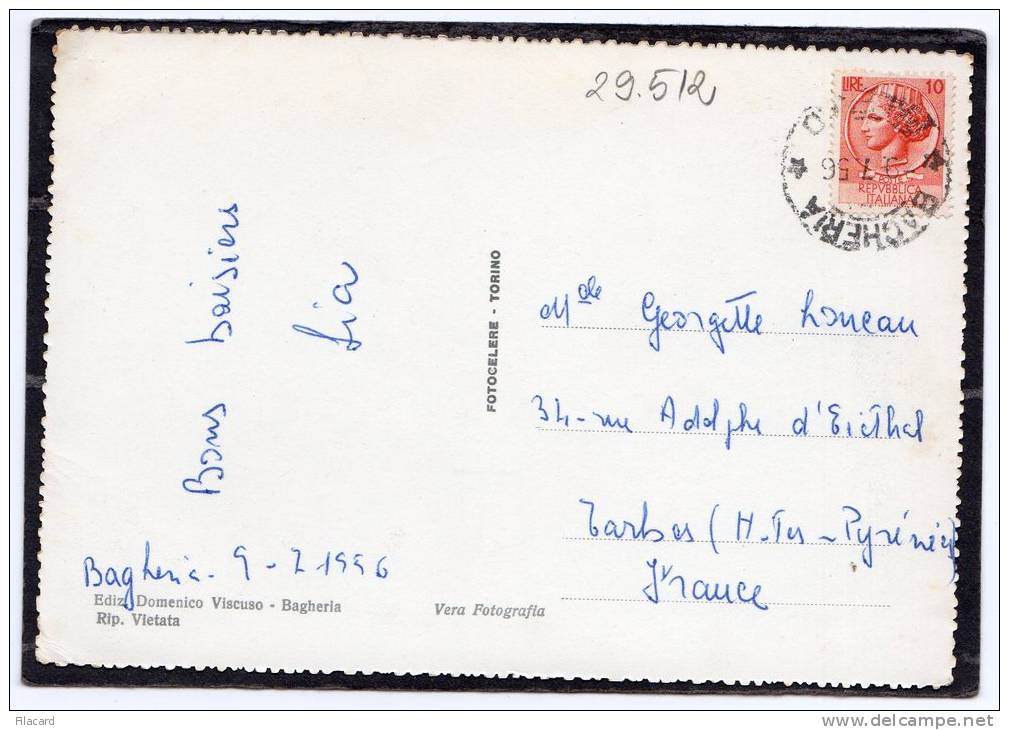 29.512
LIRE 10
POSTE
REPVBBLICA
ITALIANA
BAGHERIA
9.7.56
Bons baisiers
Lia
FOTOCELERE - TORINO
Mde Georgette
34-rue Adolphe d'Eicthal
Tarbes (H-Tes-Pyrénées)
France
Bagheria - 9-7-1956
Ediz. Domenico Viscuso - Bagheria
Rip. Vietata
Vera Fotografia
Filacard
www.delcampe.net